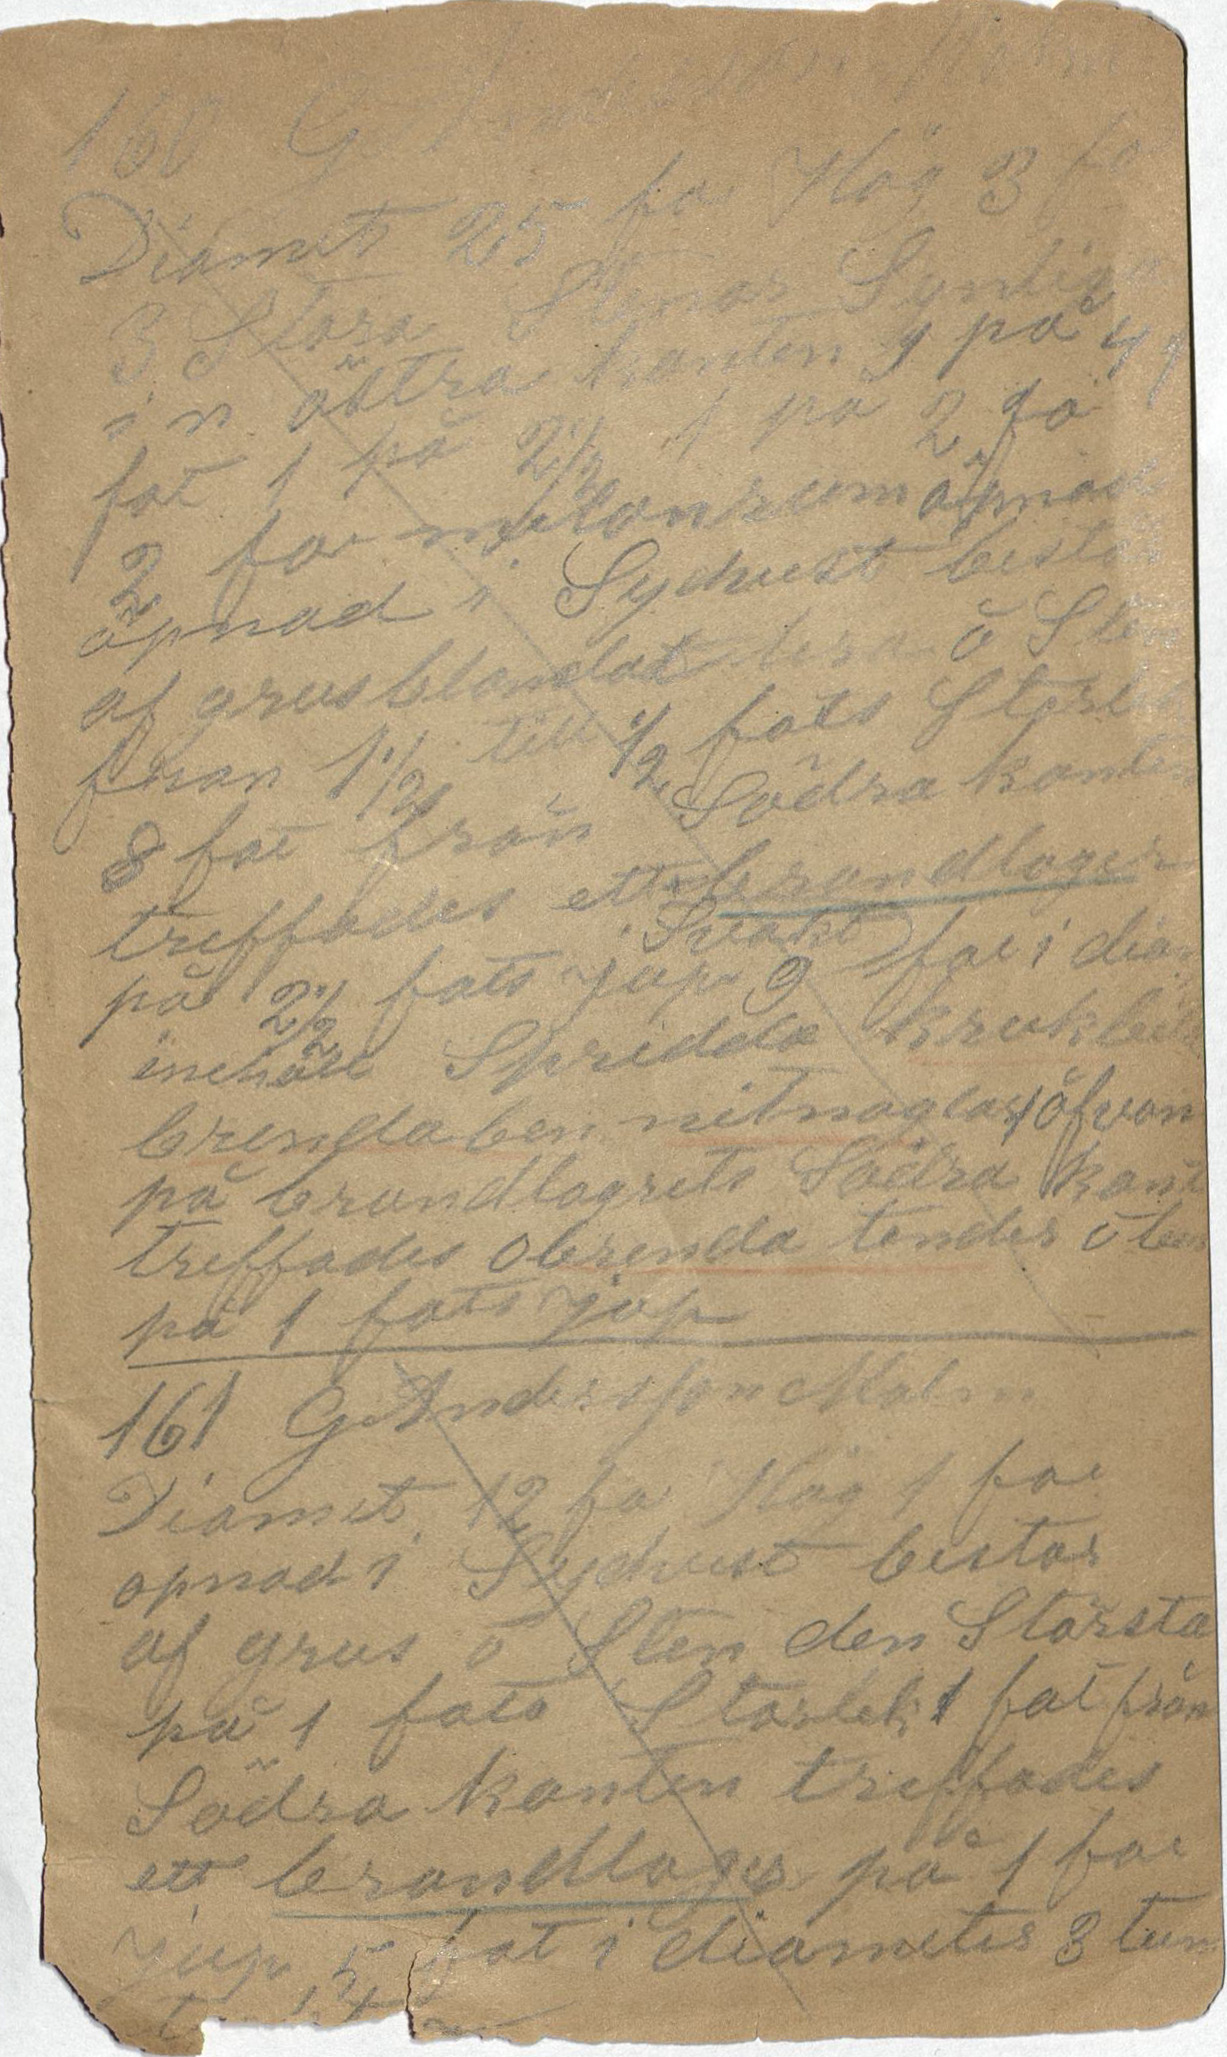 160 G Andersson Malm
Diamet 25 fot Hög 3 fo
3 Stora Stenar Synlig
i n östra kanten 1 på 4
fot 1 på 2 1/2 1 på 2 fo
2 fot mellanrum öpnad
öpnad i Sydvest bestå
af grusblandat lera ö Sten
från 1 1/2 till 1/2 fots Storlek
8 fot från Södra kanten
treffades ett brandlager
Svakt
på 2 1/2 fots jup 9 fot i diam
inehöll Spridda krukbit
brenda ben nitnaglar öfvan
på brandlagrets Södra kant
treffades obrenda tender ö ben
på 1 fots jup
161 G Andersson Malm
Diamet 12 fo Hög 1 fot
opnad i Sydvest bestar
af grus ö Sten den Största
på 1 fots Storlek 1 fot från
Södra kanten treffades
ett brandlager på 1 fot
jup 5 fot i diameter 3 tum